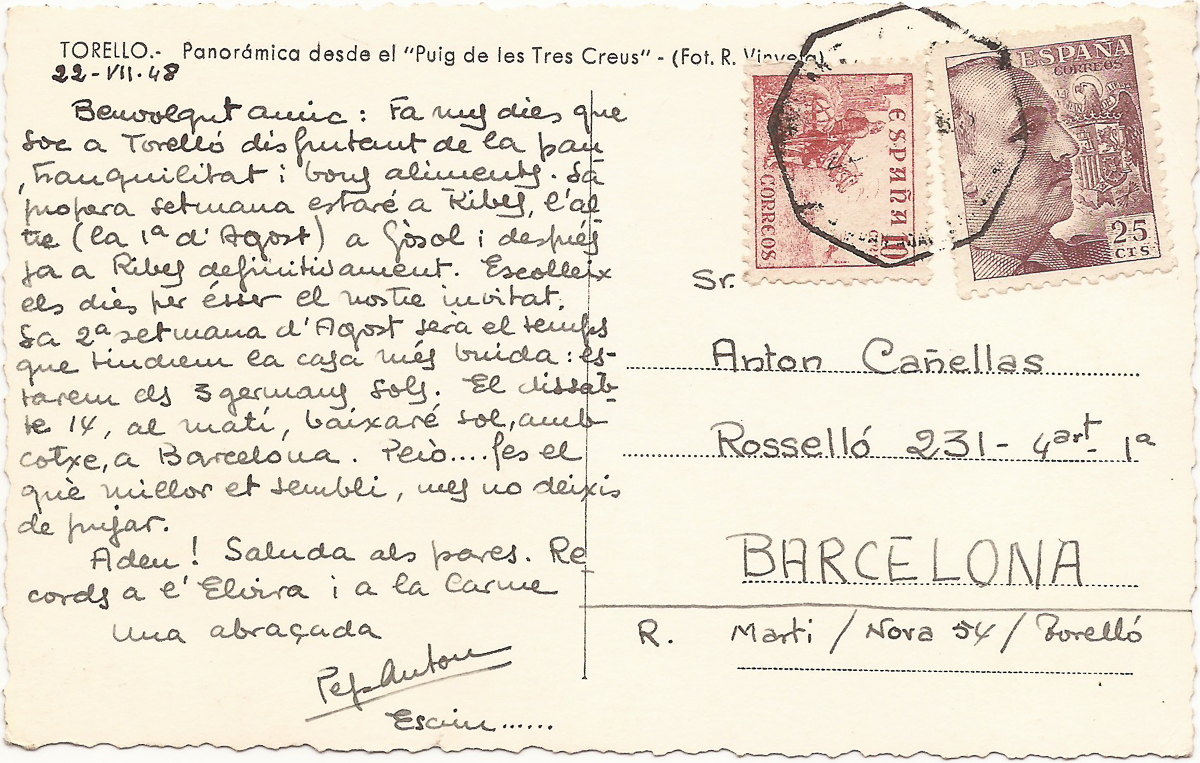 TORELLO.- Panorámica desde el "Puig de les Tres Creus" - (Fot. R. Vinyeta)
22-VII-48
Benvolgut amic: Fa uns dies que
soc a Torelló disfrutant de la pau
, tranquilitat i bons aliments. La
propera setmana estaré a Ribes, l'al
tre (la 1ª d'Agost) a Gòsol i després
ja a Ribes definitivament. Escolleix
els dies per ésser el nostre invitat.
La 2ª setmana d'Agost serà el temps
que tindrem la casa més buida: es-
tarem els 3 germans sols. El dissab-
te 14, al matí, baixaré sol, amb
cotxe, a Barcelona. Però....fes el
què millor et sembli, mes no deixis
de pujar.
Adeu! Saluda als pares. Re
cords a l'Elvira i a la Carme
Una abraçada
Pep-Anton
Escriu......
ESPAÑA
CORREOS
10
CTS
ESPAÑA
CORREOS
25
CTS
Sr.
Anton Cañellas
Rosselló 231- 4art 1a
BARCELONA
R. Marti / Nova 54 / Torelló